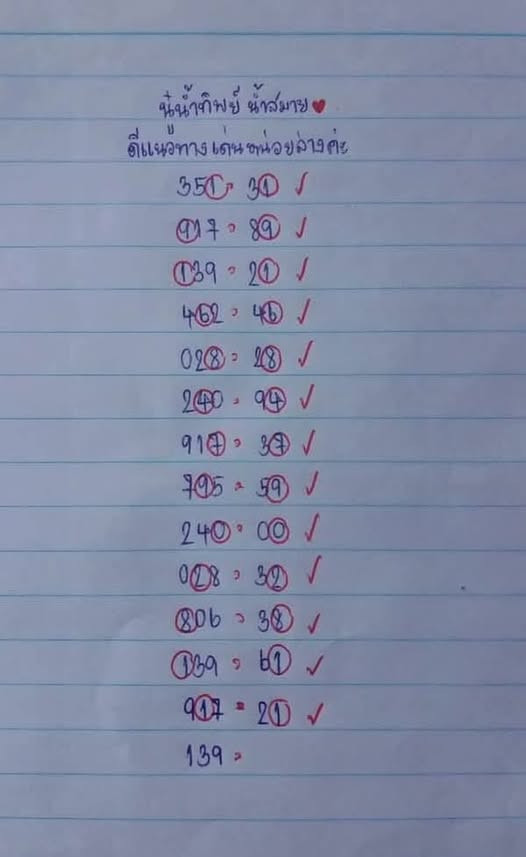 นู๋น้ำทิพย์ น้ำสมาย ❤
ดีแนวทางเด่นหน่วยล่างค่ะ
351 = 31 ✓
917 = 89 ✓
139 = 21 ✓
462 = 46 ✓
028 = 28 ✓
240 = 94 ✓
917 = 37 ✓
795 = 59 ✓
240 = 00 ✓
028 = 32 ✓
806 = 38 ✓
139 = 61 ✓
917 = 21 ✓
139 =